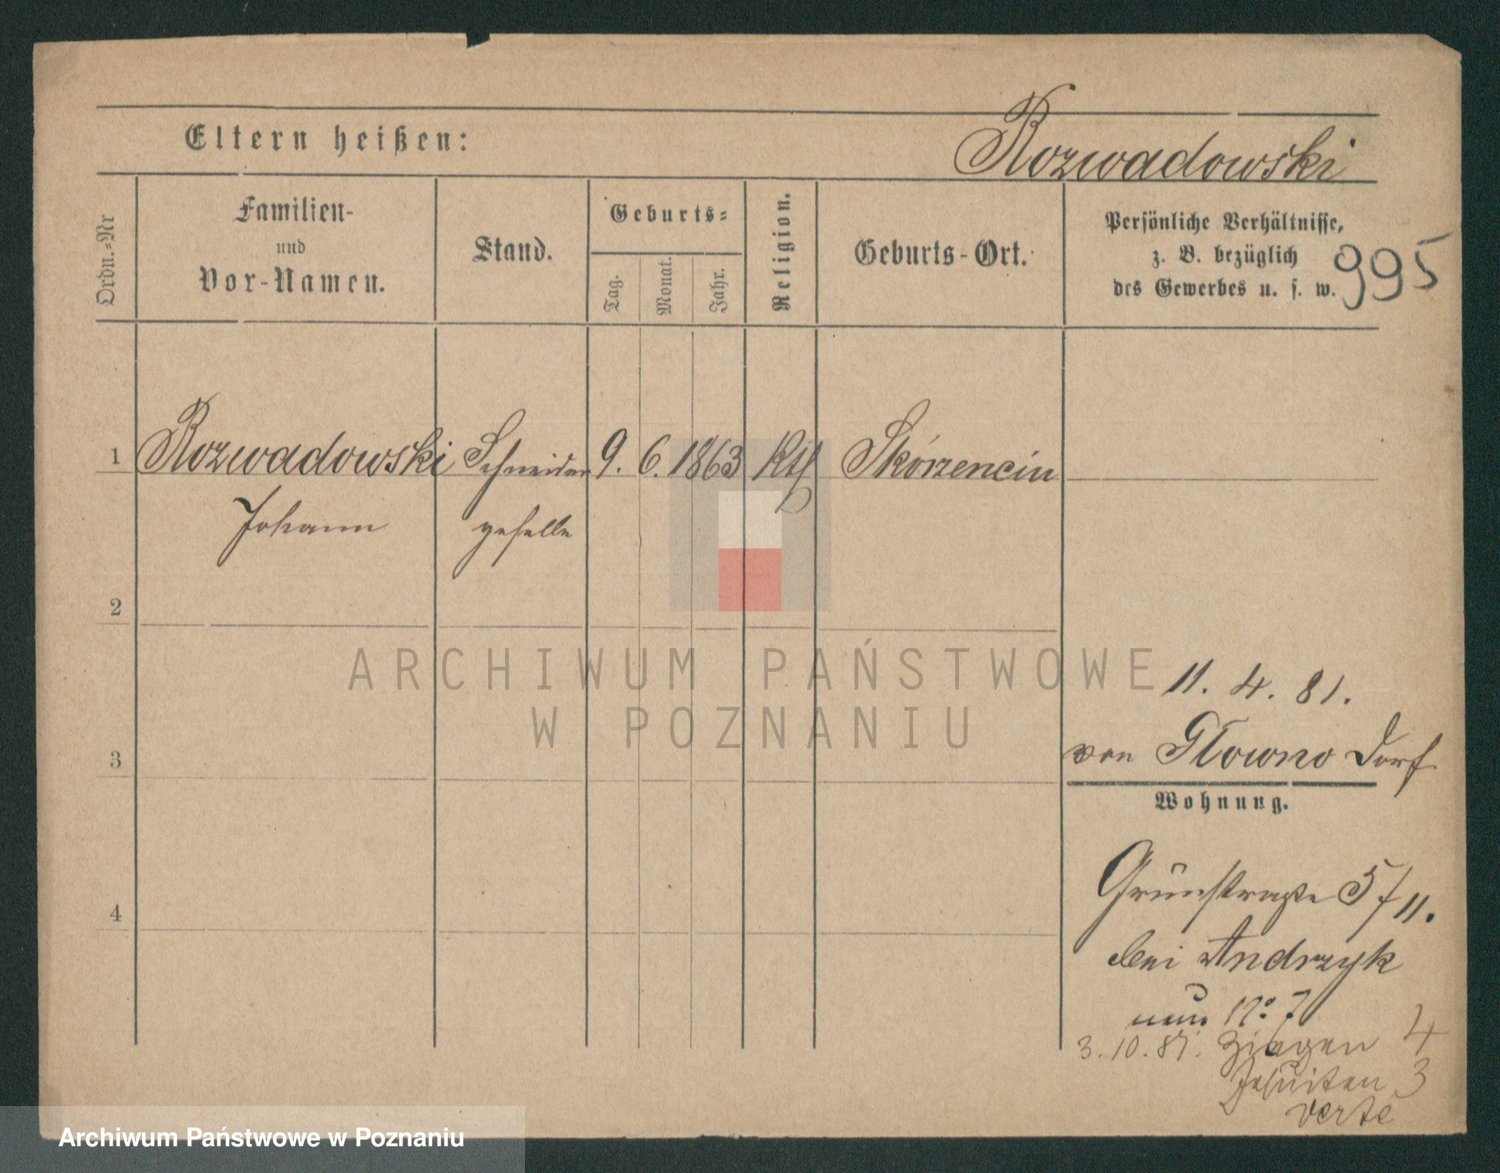 Eltern heißen:
Rozwadowski
Ordn.-Nr
Familien-
und
Vor-Namen.
Stand.
Geburts-
Tag.
Monat.
Jahr.
Religion.
Geburts-Ort.
Persönliche Verhältnisse,
z. B. bezüglich
des Gewerbes u. s. w.
995
1 Rozwadowski Schneider 9. 6. 1863 Kth Skórzencin
Johann geselle
2
3
4
11. 4. 81.
von Głowno Dorf
Wohnung.
Grünstraße 5/11.
bei Andrzyk
neue No 7
3. 10. 81. Ziegen 4
Jesuiten 3
verte
ARCHIWUM PAŃSTWOWE
W POZNANIU
Archiwum Państwowe w Poznaniu